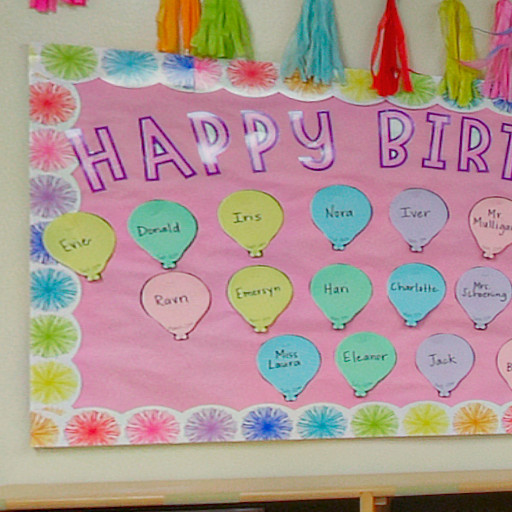 HAPPY BIRT
Evier
Donald
Iris
Nora
Iver
Mr
Mulliga
Ravn
Emersyn
Han
Charlotte
Mrs.
Schoening
Miss
Laura
Eleanor
Jack